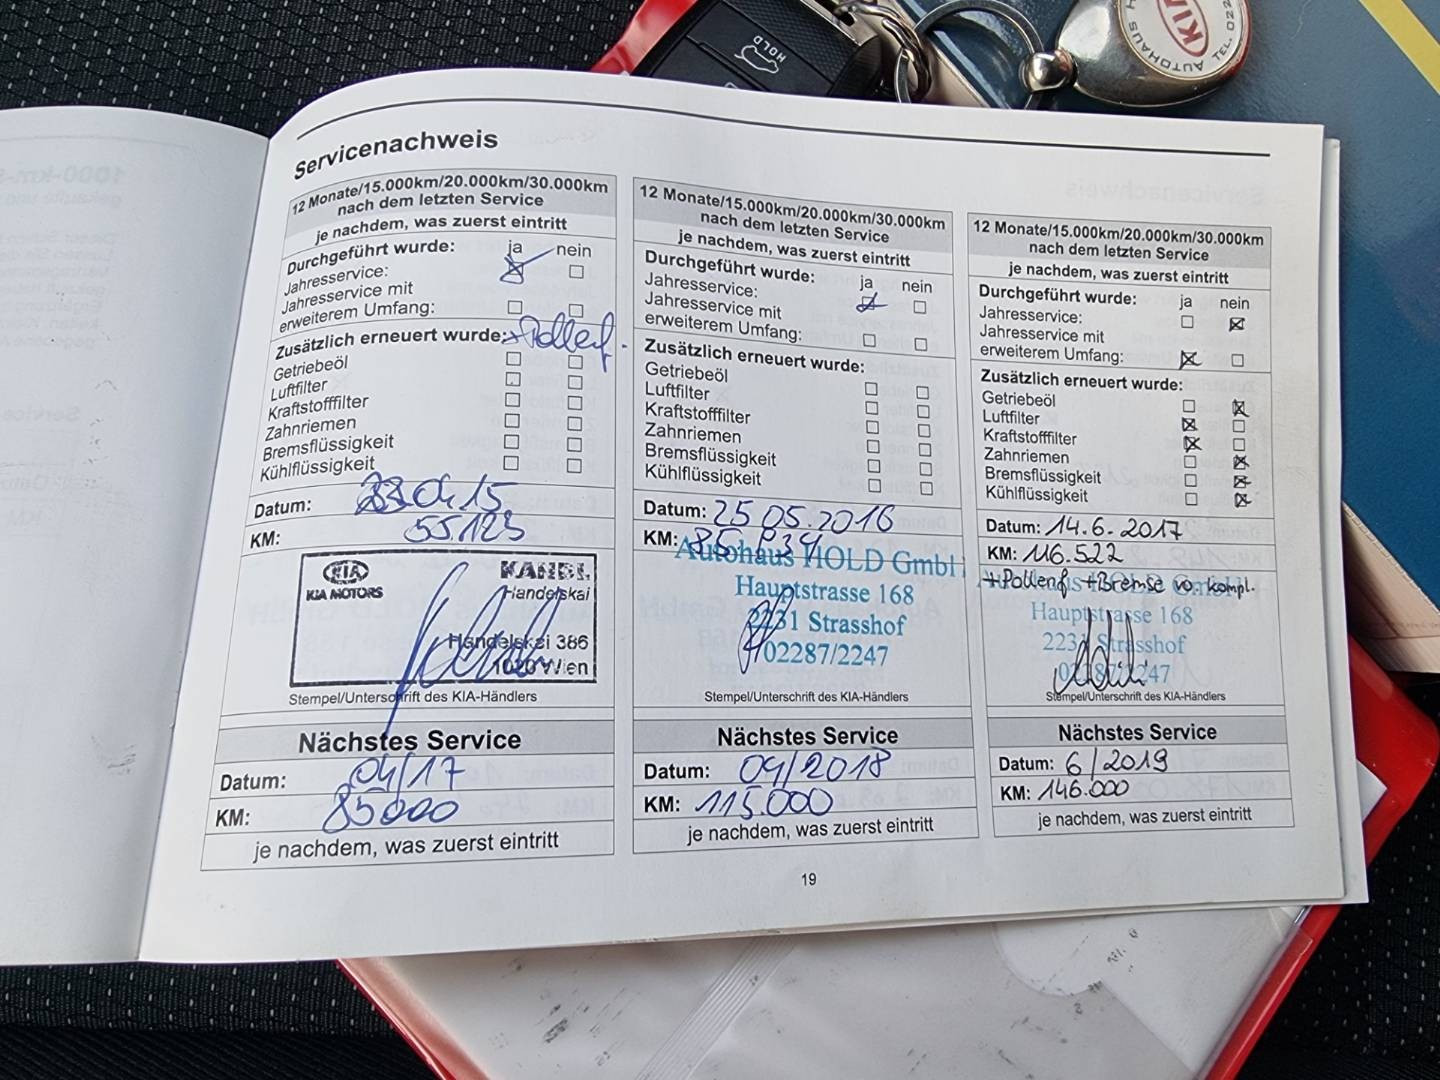 HOLD
KIA
AUTOHAUS H
TEL. 022
Servicenachweis
12 Monate/15.000km/20.000km/30.000km
nach dem letzten Service
je nachdem, was zuerst eintritt
Durchgeführt wurde: ja nein
Jahresservice:
Jahresservice mit
erweiterem Umfang:
Zusätzlich erneuert wurde: + Pollenf.
Getriebeöl
Luftfilter
Kraftstofffilter
Zahnriemen
Bremsflüssigkeit
Kühlflüssigkeit
Datum: 04.15
KM: 55.123
KIA
KIA MOTORS
KANDL
Handelskai
Handelskai 386
1020 Wien
Stempel/Unterschrift des KIA-Händlers
Nächstes Service
Datum: 04/17
KM: 85000
je nachdem, was zuerst eintritt
12 Monate/15.000km/20.000km/30.000km
nach dem letzten Service
je nachdem, was zuerst eintritt
Durchgeführt wurde: ja nein
Jahresservice:
Jahresservice mit
erweiterem Umfang:
Zusätzlich erneuert wurde:
Getriebeöl
Luftfilter
Kraftstofffilter
Zahnriemen
Bremsflüssigkeit
Kühlflüssigkeit
Datum: 25 05.2016
KM: 85
Autohaus HOLD GmbH
Hauptstrasse 168
2231 Strasshof
02287/2247
Stempel/Unterschrift des KIA-Händlers
Nächstes Service
Datum: 04/2018
KM: 115.000
je nachdem, was zuerst eintritt
12 Monate/15.000km/20.000km/30.000km
nach dem letzten Service
je nachdem, was zuerst eintritt
Durchgeführt wurde: ja nein
Jahresservice:
Jahresservice mit
erweiterem Umfang:
Zusätzlich erneuert wurde:
Getriebeöl
Luftfilter
Kraftstofffilter
Zahnriemen
Bremsflüssigkeit
Kühlflüssigkeit
Datum: 14.6.2017
KM: 116.522
+Pollenf +Bremse vo kompl.
Autohaus HOLD GmbH
Hauptstrasse 168
2231 Strasshof
02287/2247
Stempel/Unterschrift des KIA-Händlers
Nächstes Service
Datum: 6/2019
KM: 146.000
je nachdem, was zuerst eintritt
19